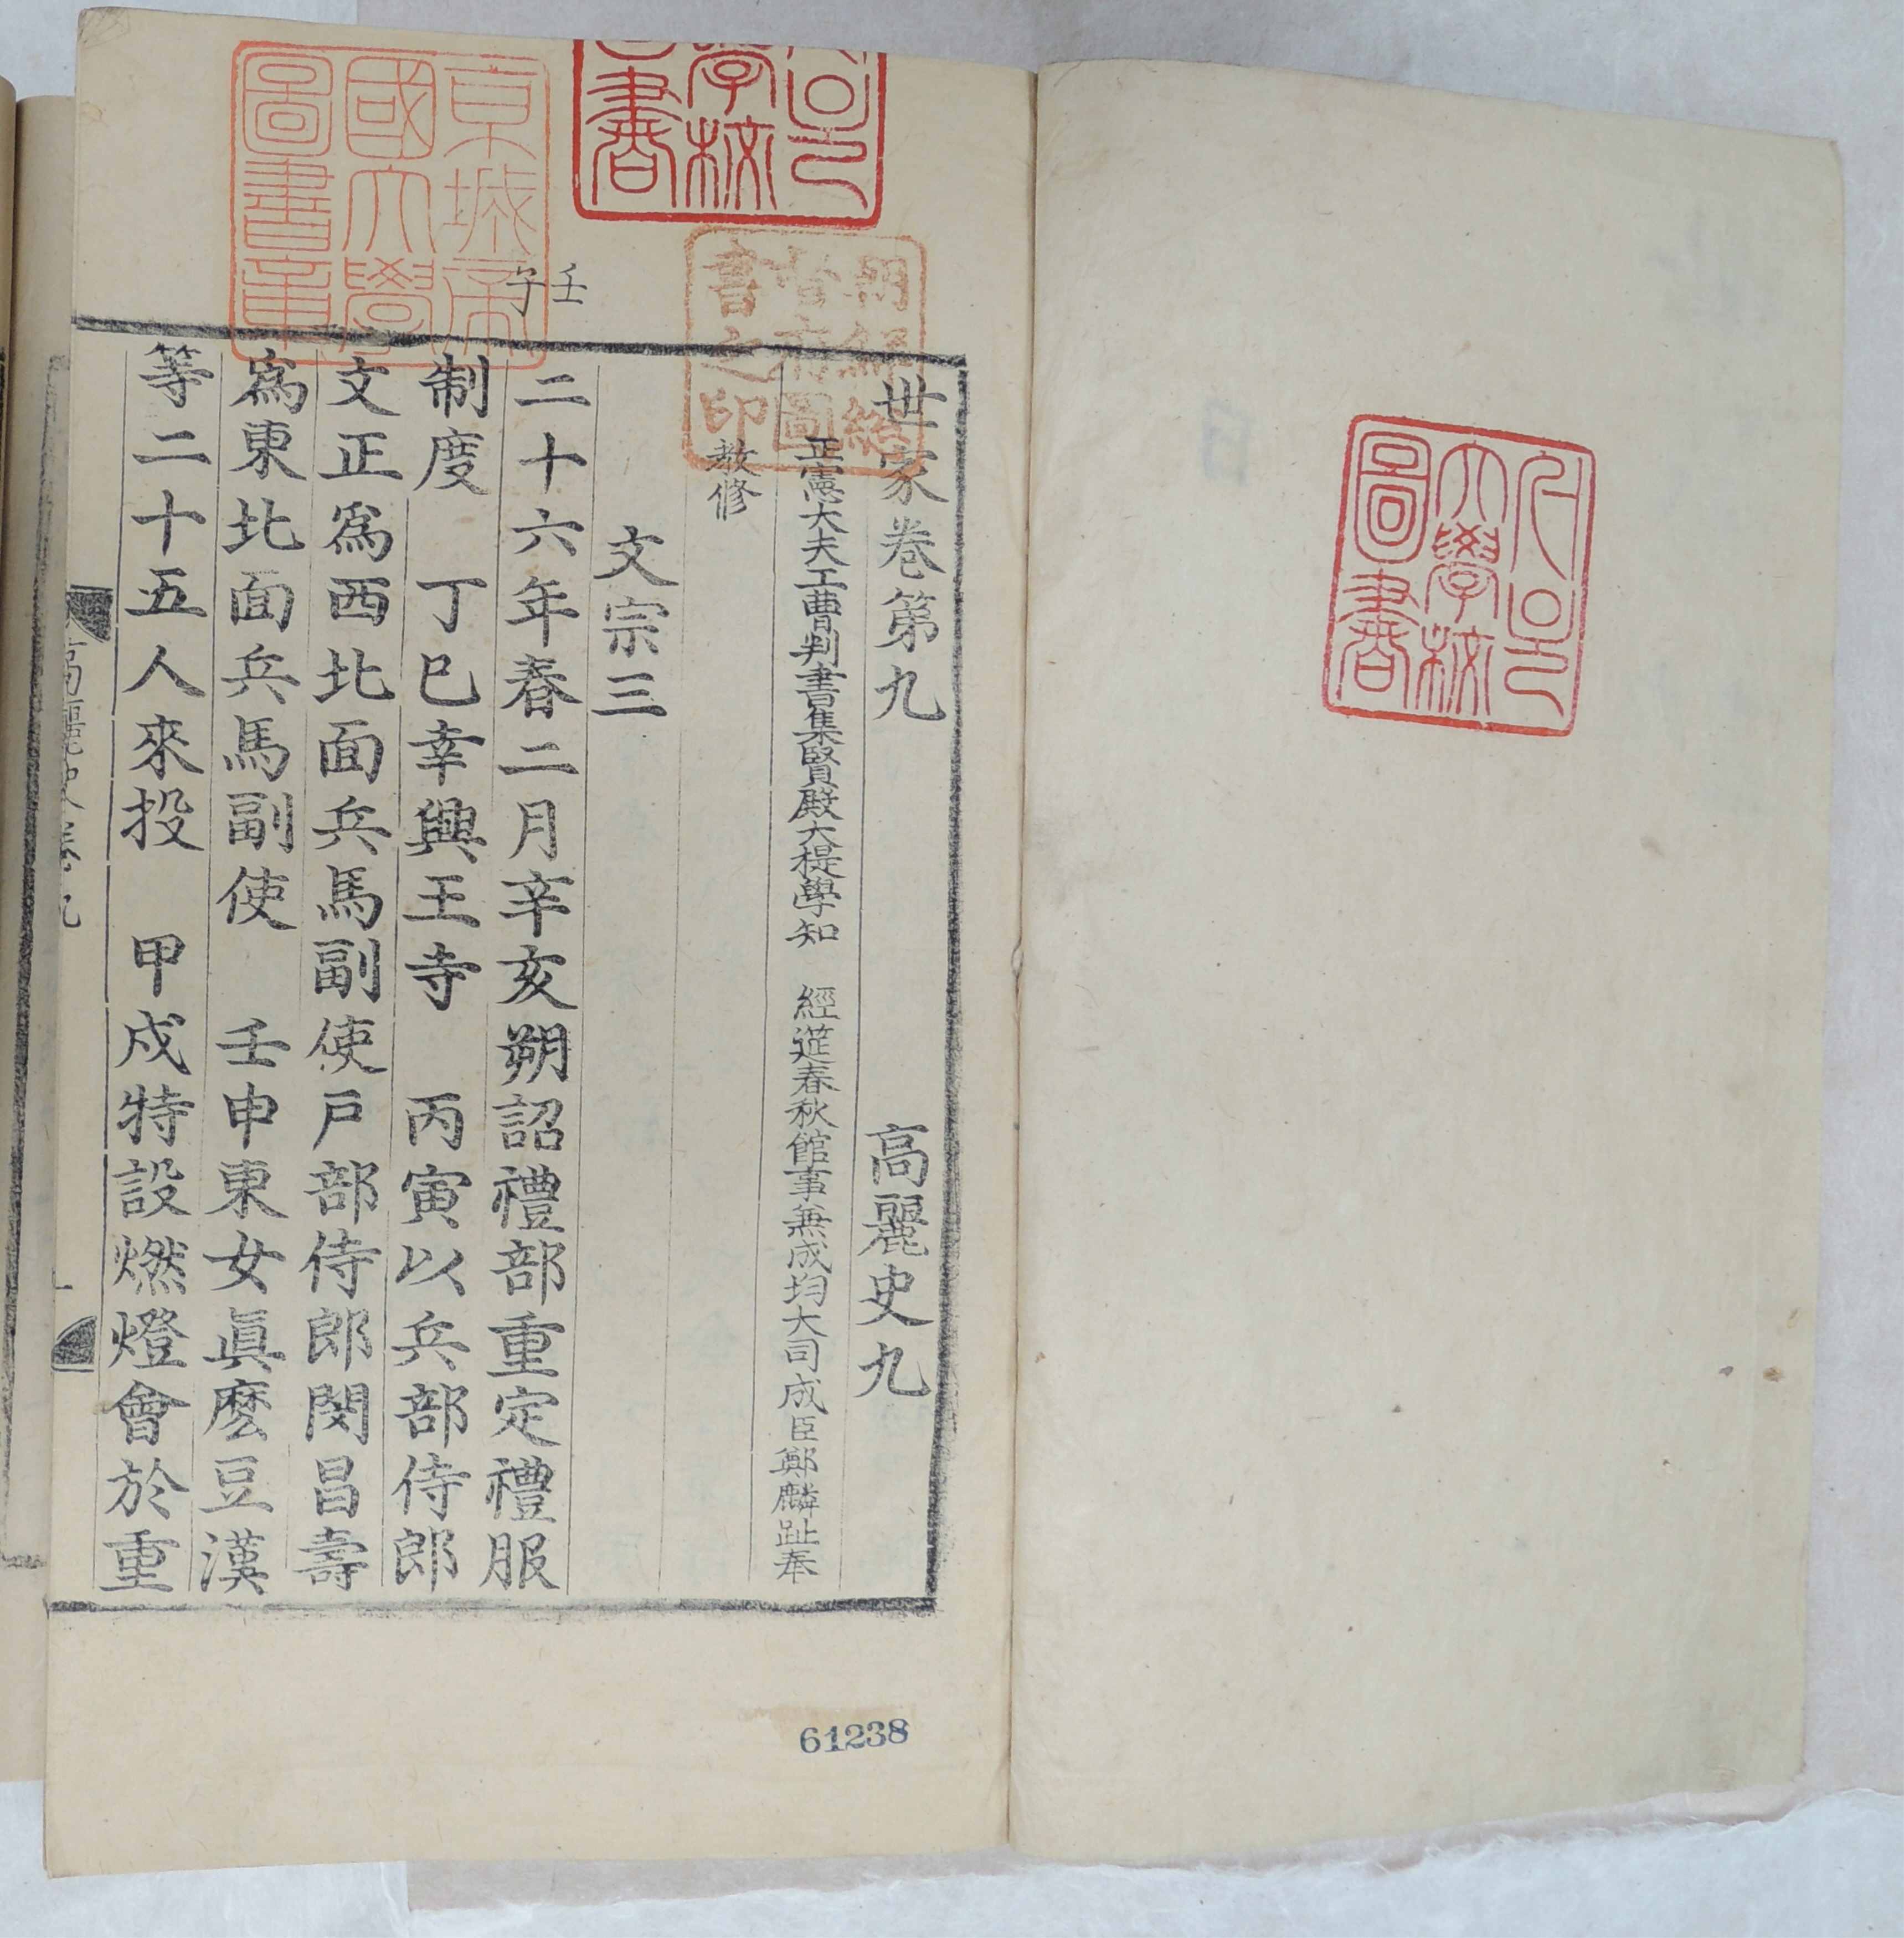 世家卷第九 高麗史九
正憲大夫工曹判書集賢殿大提學知 經筵春秋館事兼成均大司成臣鄭麟趾奉
教修
文宗三
壬子
二十六年春二月辛亥朔詔禮部重定禮服
制度 丁巳幸興王寺 丙寅以兵部侍郎
文正爲西北面兵馬副使戶部侍郎閔昌壽
爲東北面兵馬副使 壬申東女眞麽豆漢
等二十五人來投 甲戌特設燃燈會於重
高麗史卷九
一
京城帝
國大學
圖書章
朝鮮總
督府圖
書之印
大學校
圖書
學校
書
61238